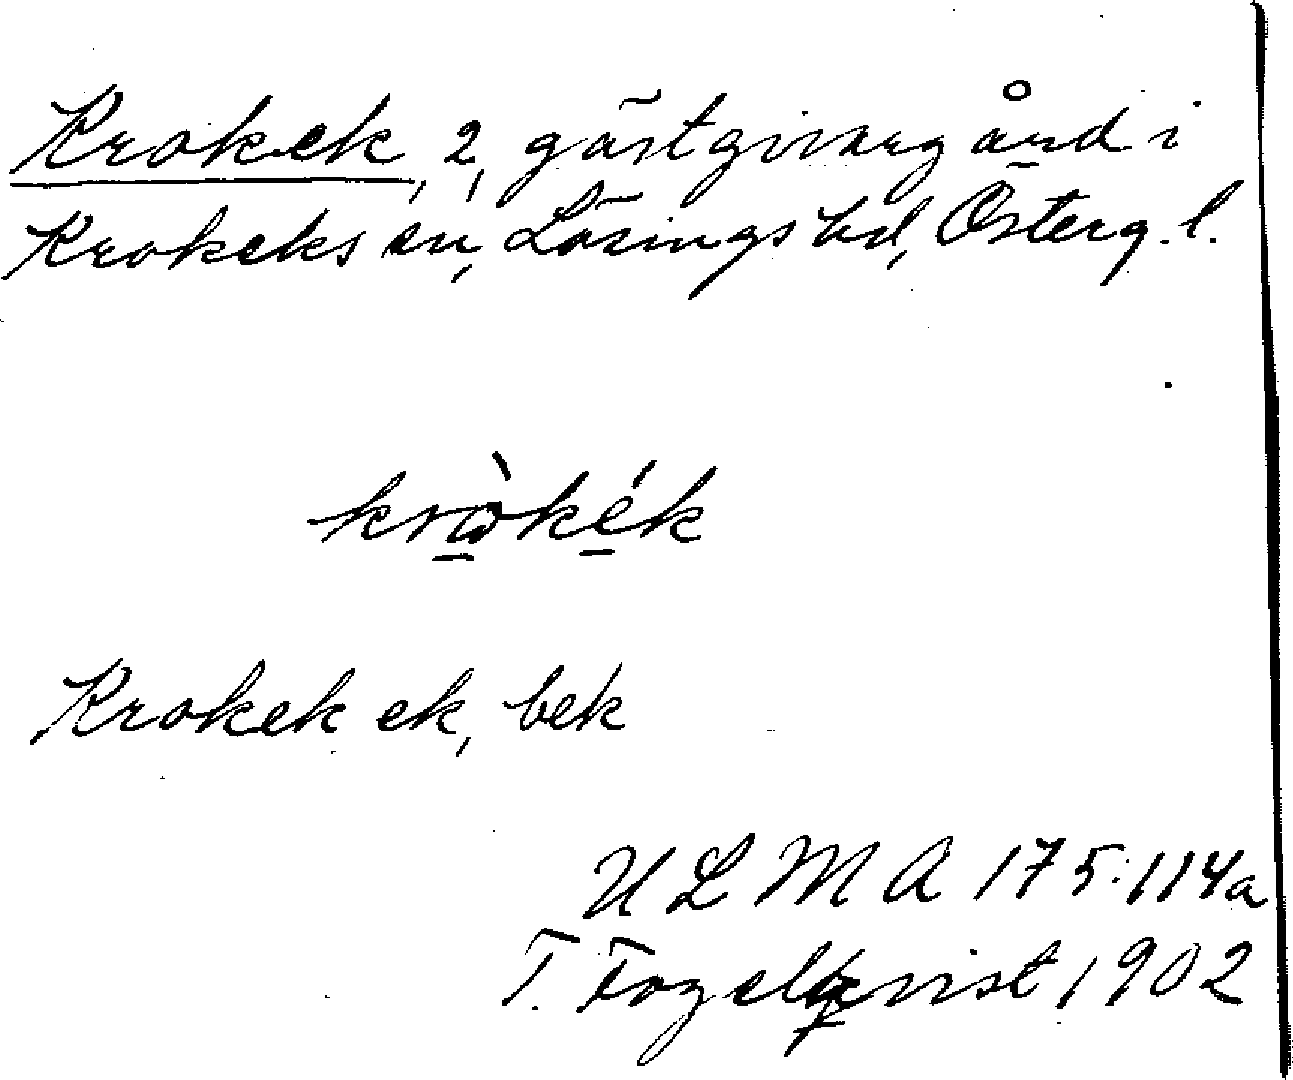 Krokek, 2, gästgivargård i
Krokeks sn, Lösings hd, Österg. l.
krɷ̀kék
Krokek ek, bek
ULMA 175:114a
T. Fogelqvist 1902